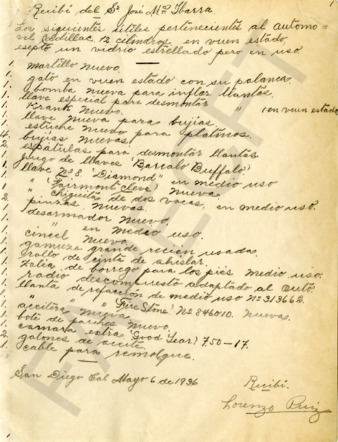 1
Recibi del Sr José Ma Ibarra
Los siguientes útiles pertenecientes al automo-
vil Cadillac 12 cilindros en vuen estado
septo un vidrio estrellado pero en uso.
1. martillo nuevo.
1. gato en vuen estado con su palanca.
1. bomba nueva para inflar llantas.
1. llave especial para desmontar " en vuen estado
1. nuevo.
1. llave nueva para bujias.
1. estuche nuevo para platinos.
4. bujias nuevas.
2. espatulas para desmontar llantas.
1. juego de llaves 'Barcalo Buffalo'
1. llave No 8 'Diamond' en medio uso
1. " 'Fairmont Cleve' nueva
1. " chiquita de dos vocas, en medio uso.
1. pinzas nuevas
1. desarmador nuevo,
1. " en medio uso.
1. cincel nuevo.
1. gamuza grande recien usada.
1. rollo de cinta de aislar.
1. zalea de borrego para los pies medio uso.
1. radio descompuesto adaptado al auto.
1. llanta de refacción de medio uso No 313662.
" 'Fire Stone' No 846010. Nuevas.
1. aceitera nueva
1. bote de parches nuevo
1. camara extra 'Good Year' 750-17.
2. galones de aceite
1. cable para remolque.
San Diego Cal Mayo 6 de 1936
Recibi.
Lorenzo Ruiz